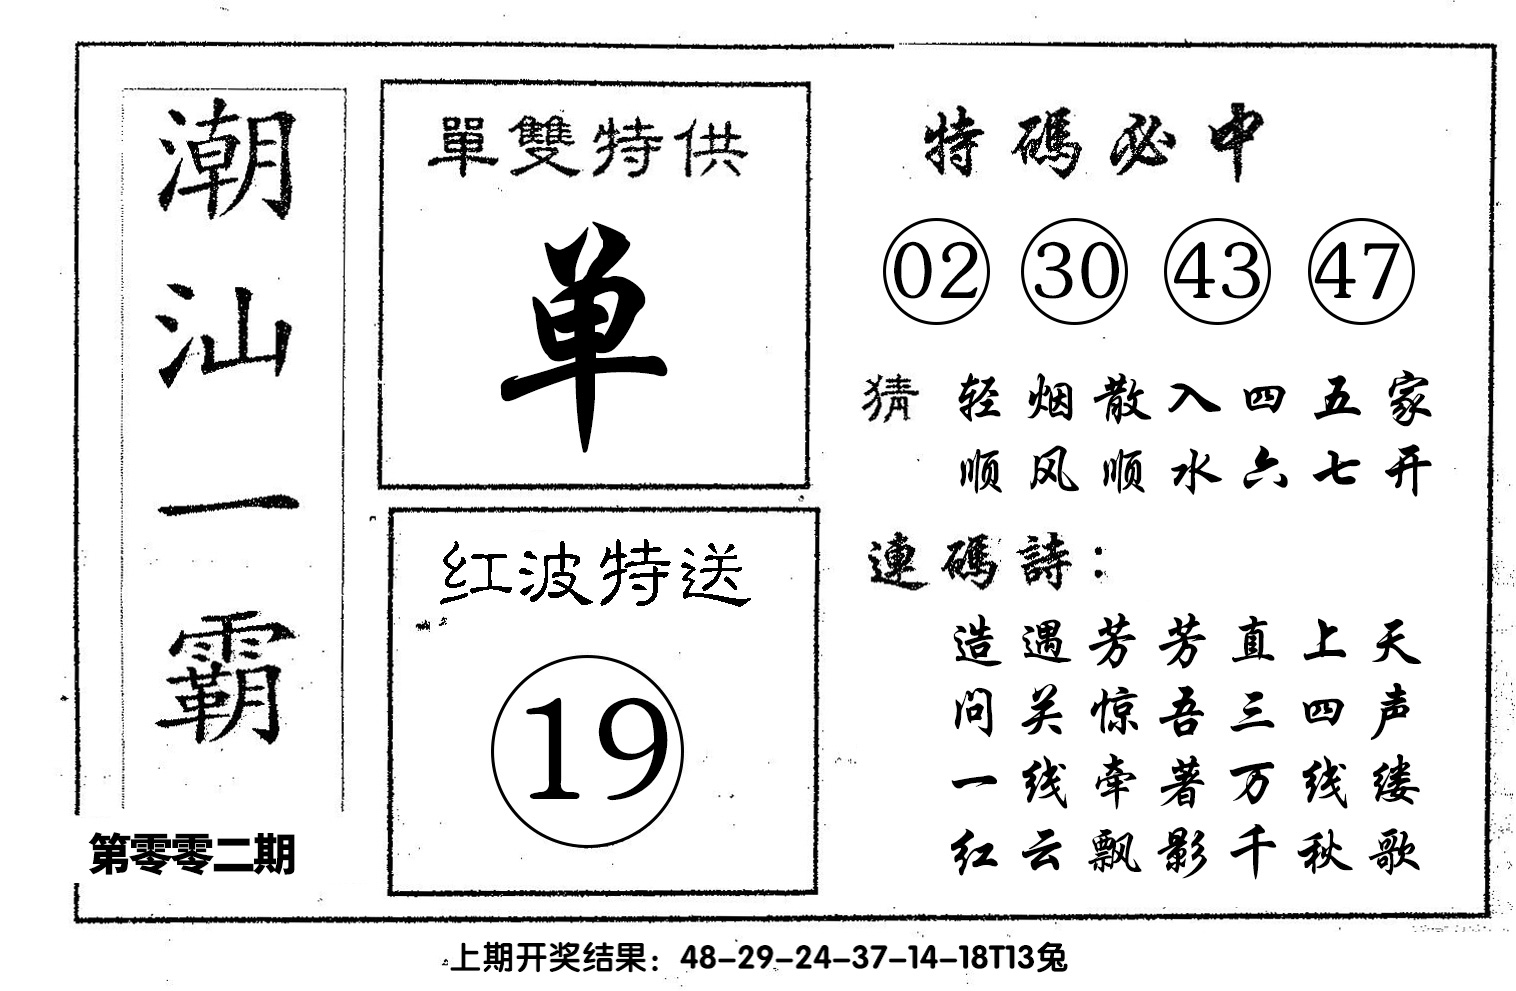 潮汕一霸
第零零二期
單雙特供
单
红波特送
19
特碼必中
02 30 43 47
猜 轻烟散入四五家
顺风顺水六七开
連碼詩：
造遇芳芳直上天
问关惊吾三四声
一线牵著万线缕
红云飘影千秋歌
上期开奖结果：48-29-24-37-14-18T13兔